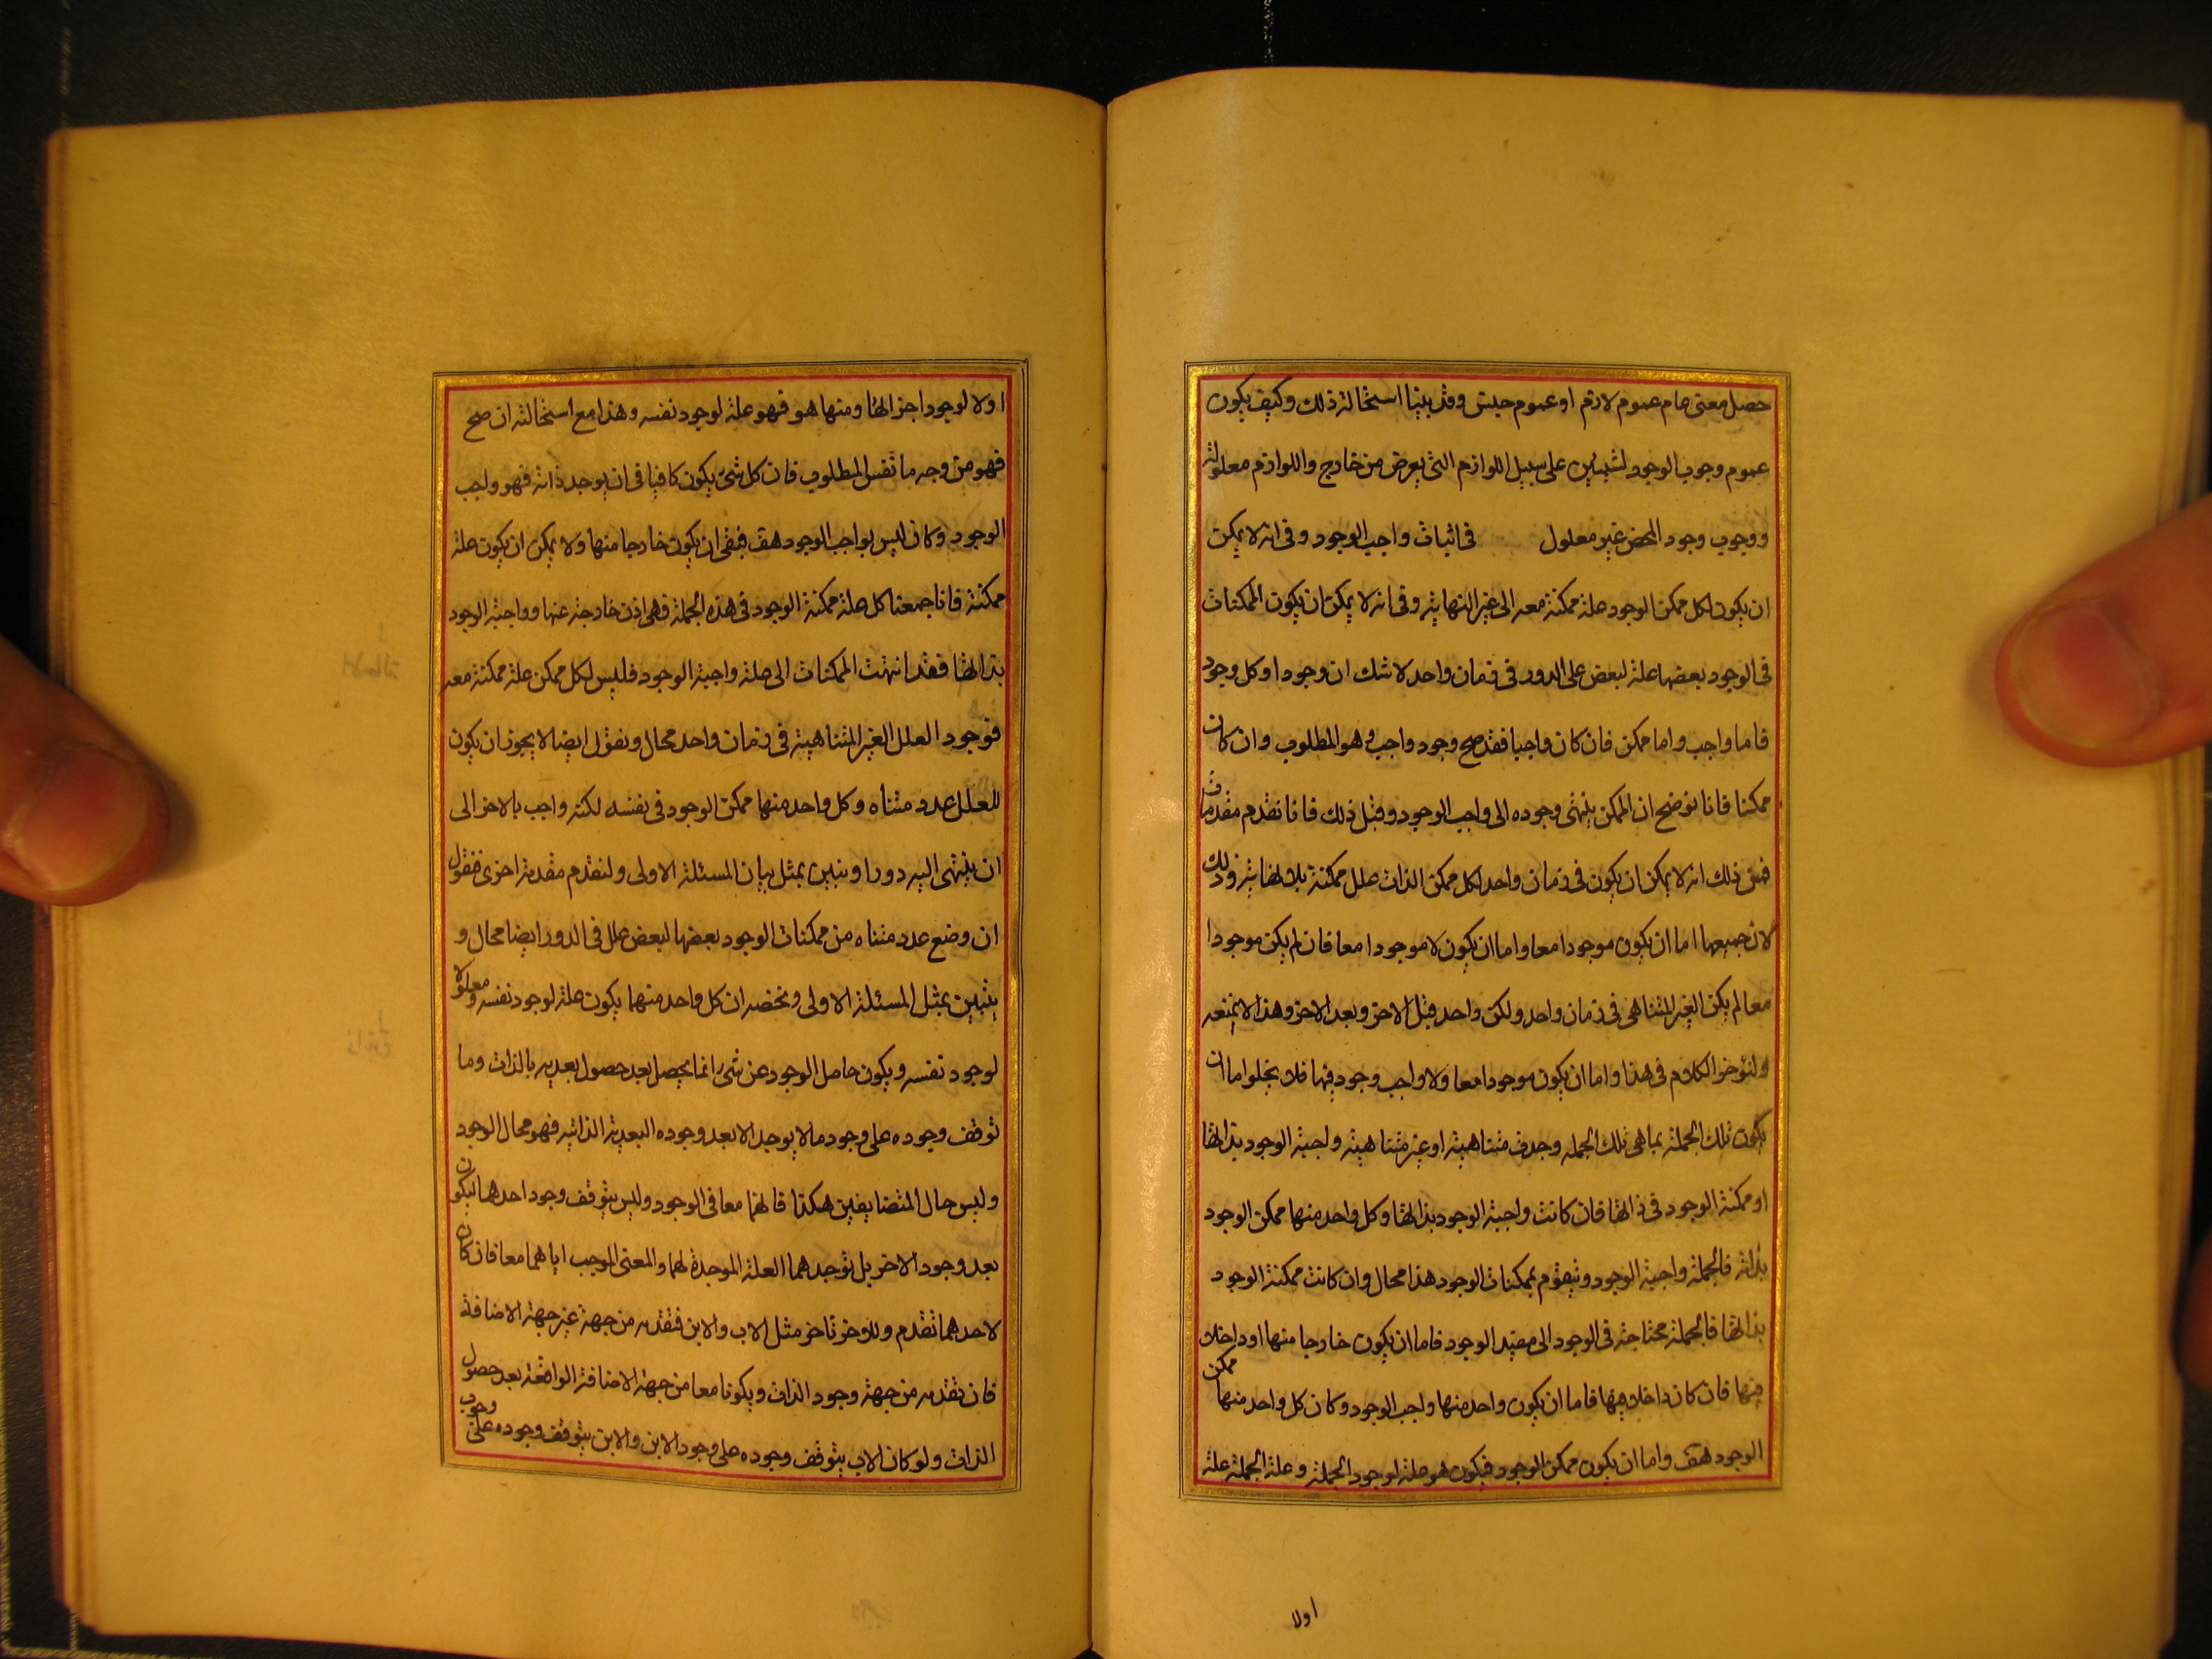 حصل معنى عام عموم لازم او عموم جنس وقد بينا استحالة ذلك وكيف يكون
عموم وجوب الوجود لشيئين على سبيل اللوازم التى يعرض من خارج واللوازم معلولة
ووجوب وجود المحض غير معلول فى اثبات واجب الوجود وفى انه لا يمكن
ان يكون لكل ممكن الوجود علة ممكنة معه الى غير النهاية وفى انه لا يمكن ان يكون الممكنات
فى الوجود بعضها علة لبعض على الدور فى زمان واحد لا شك ان وجودا وكل وجود
فاما واجب واما ممكن فان كان واجبا فقد صح وجود واجب وهو المطلوب وان كان
ممكنا فانا نوضح ان الممكن ينتهى وجوده الى واجب الوجود وقبل ذلك فانا نقدم مقدمات
فمن ذلك انه لا يمكن ان يكون فى زمان واحد لكل ممكن الذات علل ممكنة بلا نهاية وذلك
لان جميعها اما ان يكون موجودا معا واما ان يكون لا موجودا معا فان لم يكن موجودا
معا لم يكن الغير المتناهى فى زمان واحد ولكن واحد قبل الاخر وبعد الاخر وهذا لا يمنعه
ولنؤخر الكلام فى هذا واما ان يكون موجودا معا ولا واجب وجود فيها فلا يخلوا اما ان
يكون تلك الجملة بما هى تلك الجملة وجدت متناهية او غير متناهية واجبة الوجود بذاتها
او ممكنة الوجود فى ذاتها فان كانت واجبة الوجود بذاتها وكل واحد منها ممكن الوجود
بذاته فالجملة واجبة الوجود وتيقوم بممكنات الوجود هذا محال وان كانت ممكنة الوجود
بذاتها فالجملة محتاجة فى الوجود الى مفيد الوجود فاما ان يكون خارجا منها او داخلا
فيها فان كان داخلا فيها فاما ان يكون واحد منها واجب الوجود وكان كل واحد منها ممكن
الوجود هف واما ان يكون ممكن الوجود فيكون هو علة لوجود الجملة وعلة الجملة علة
اولا
اولا لوجود اجزائها ومنها هو فهو علة لوجود نفسه وهذا مع استحالته ان صح
فهو من وجه ما نفس المطلوب فان كل شئ يكون كافيا فى ان يوجد ذاته فهو واجب
الوجود وكان ليس بواجب الوجود هف فبقى ان يكون خارجا منها ولا يمكن ان يكون علة
ممكنة فانا جمعنا كل علة ممكنة الوجود فى هذه الجملة فهى اذن خارجة عنها وواجبة الوجود
بذاتها فقد انتهت الممكنات الى علة واجبة الوجود فليس لكل ممكن علة ممكنة معه
فوجود العلل الغير المتناهية فى زمان واحد محال ونقول ايضا لا يجوز ان يكون
للعلل عدد متناه وكل واحد منها ممكن الوجود فى نفسه لكنه واجب بالاخر الى
ان ينتهى اليه دورا ونبين بمثل بيان المسئلة الاولى ولنقدم مقدمة اخرى فنقول
ان وضع عدد متناه من ممكنات الوجود بعضها لبعض علل فى الدور ايضا محال و
يتبين بمثل المسئلة الاولى ونخصه ان كل واحد منهما يكون علة لوجود نفسه ومعلولا
لوجود نفسه ويكون حاصل الوجود عن شئ انما يحصل بعد حصول بعديه بالذات وما
توقف وجوده على وجود ما لا يوجد الا بعد وجوده البعدية الذاتية فهو محال الوجود
وليس حال المتضايفين هكذا فانهما معا فى الوجود وليس يتوقف وجود احدهما ليكون
بعد وجود الاخر بل توجدهما العلة الموجدة لهما والمعنى الموجب اياهما معا فان كان
لاحدهما تقدم وللاخر تاخر مثل الاب والابن فتقدمه من جهة غير جهة الاضافة
فان تقدمه من جهة وجود الذات ويكونا معا من جهة الاضافة الواقعة بعد حصول
الذات ولو كان الاب يتوقف وجوده على وجود الابن والابن يتوقف وجوده على وجود